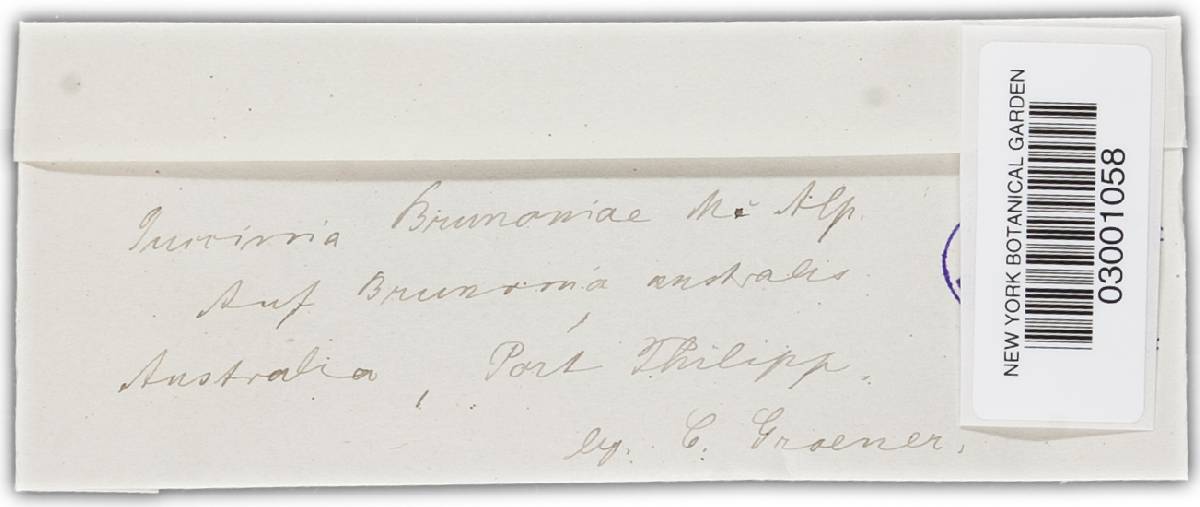 Puccinia Brunoniae Mc Alp.
Auf Brunonia australis.
Australia, Port Philipp.
leg. C. Groener.
NEW YORK BOTANICAL GARDEN
03001058